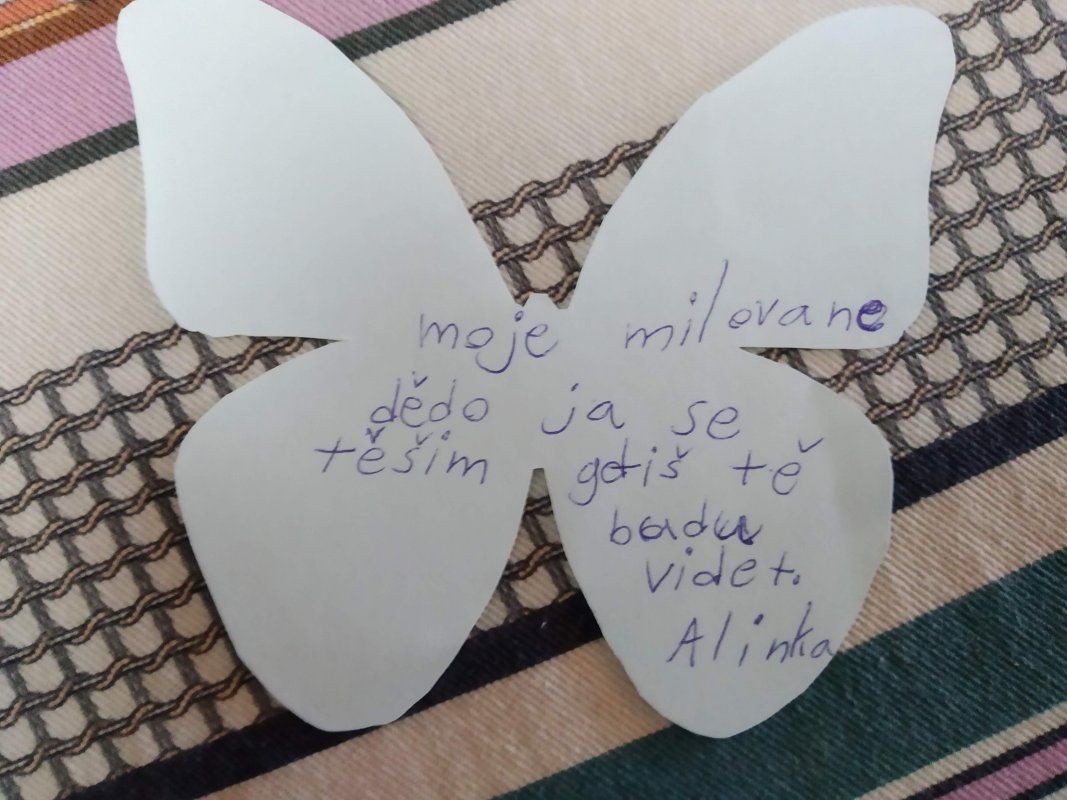 moje milovane
dědo ja se
těšim gdiš tě
badu
videt.
Alinka